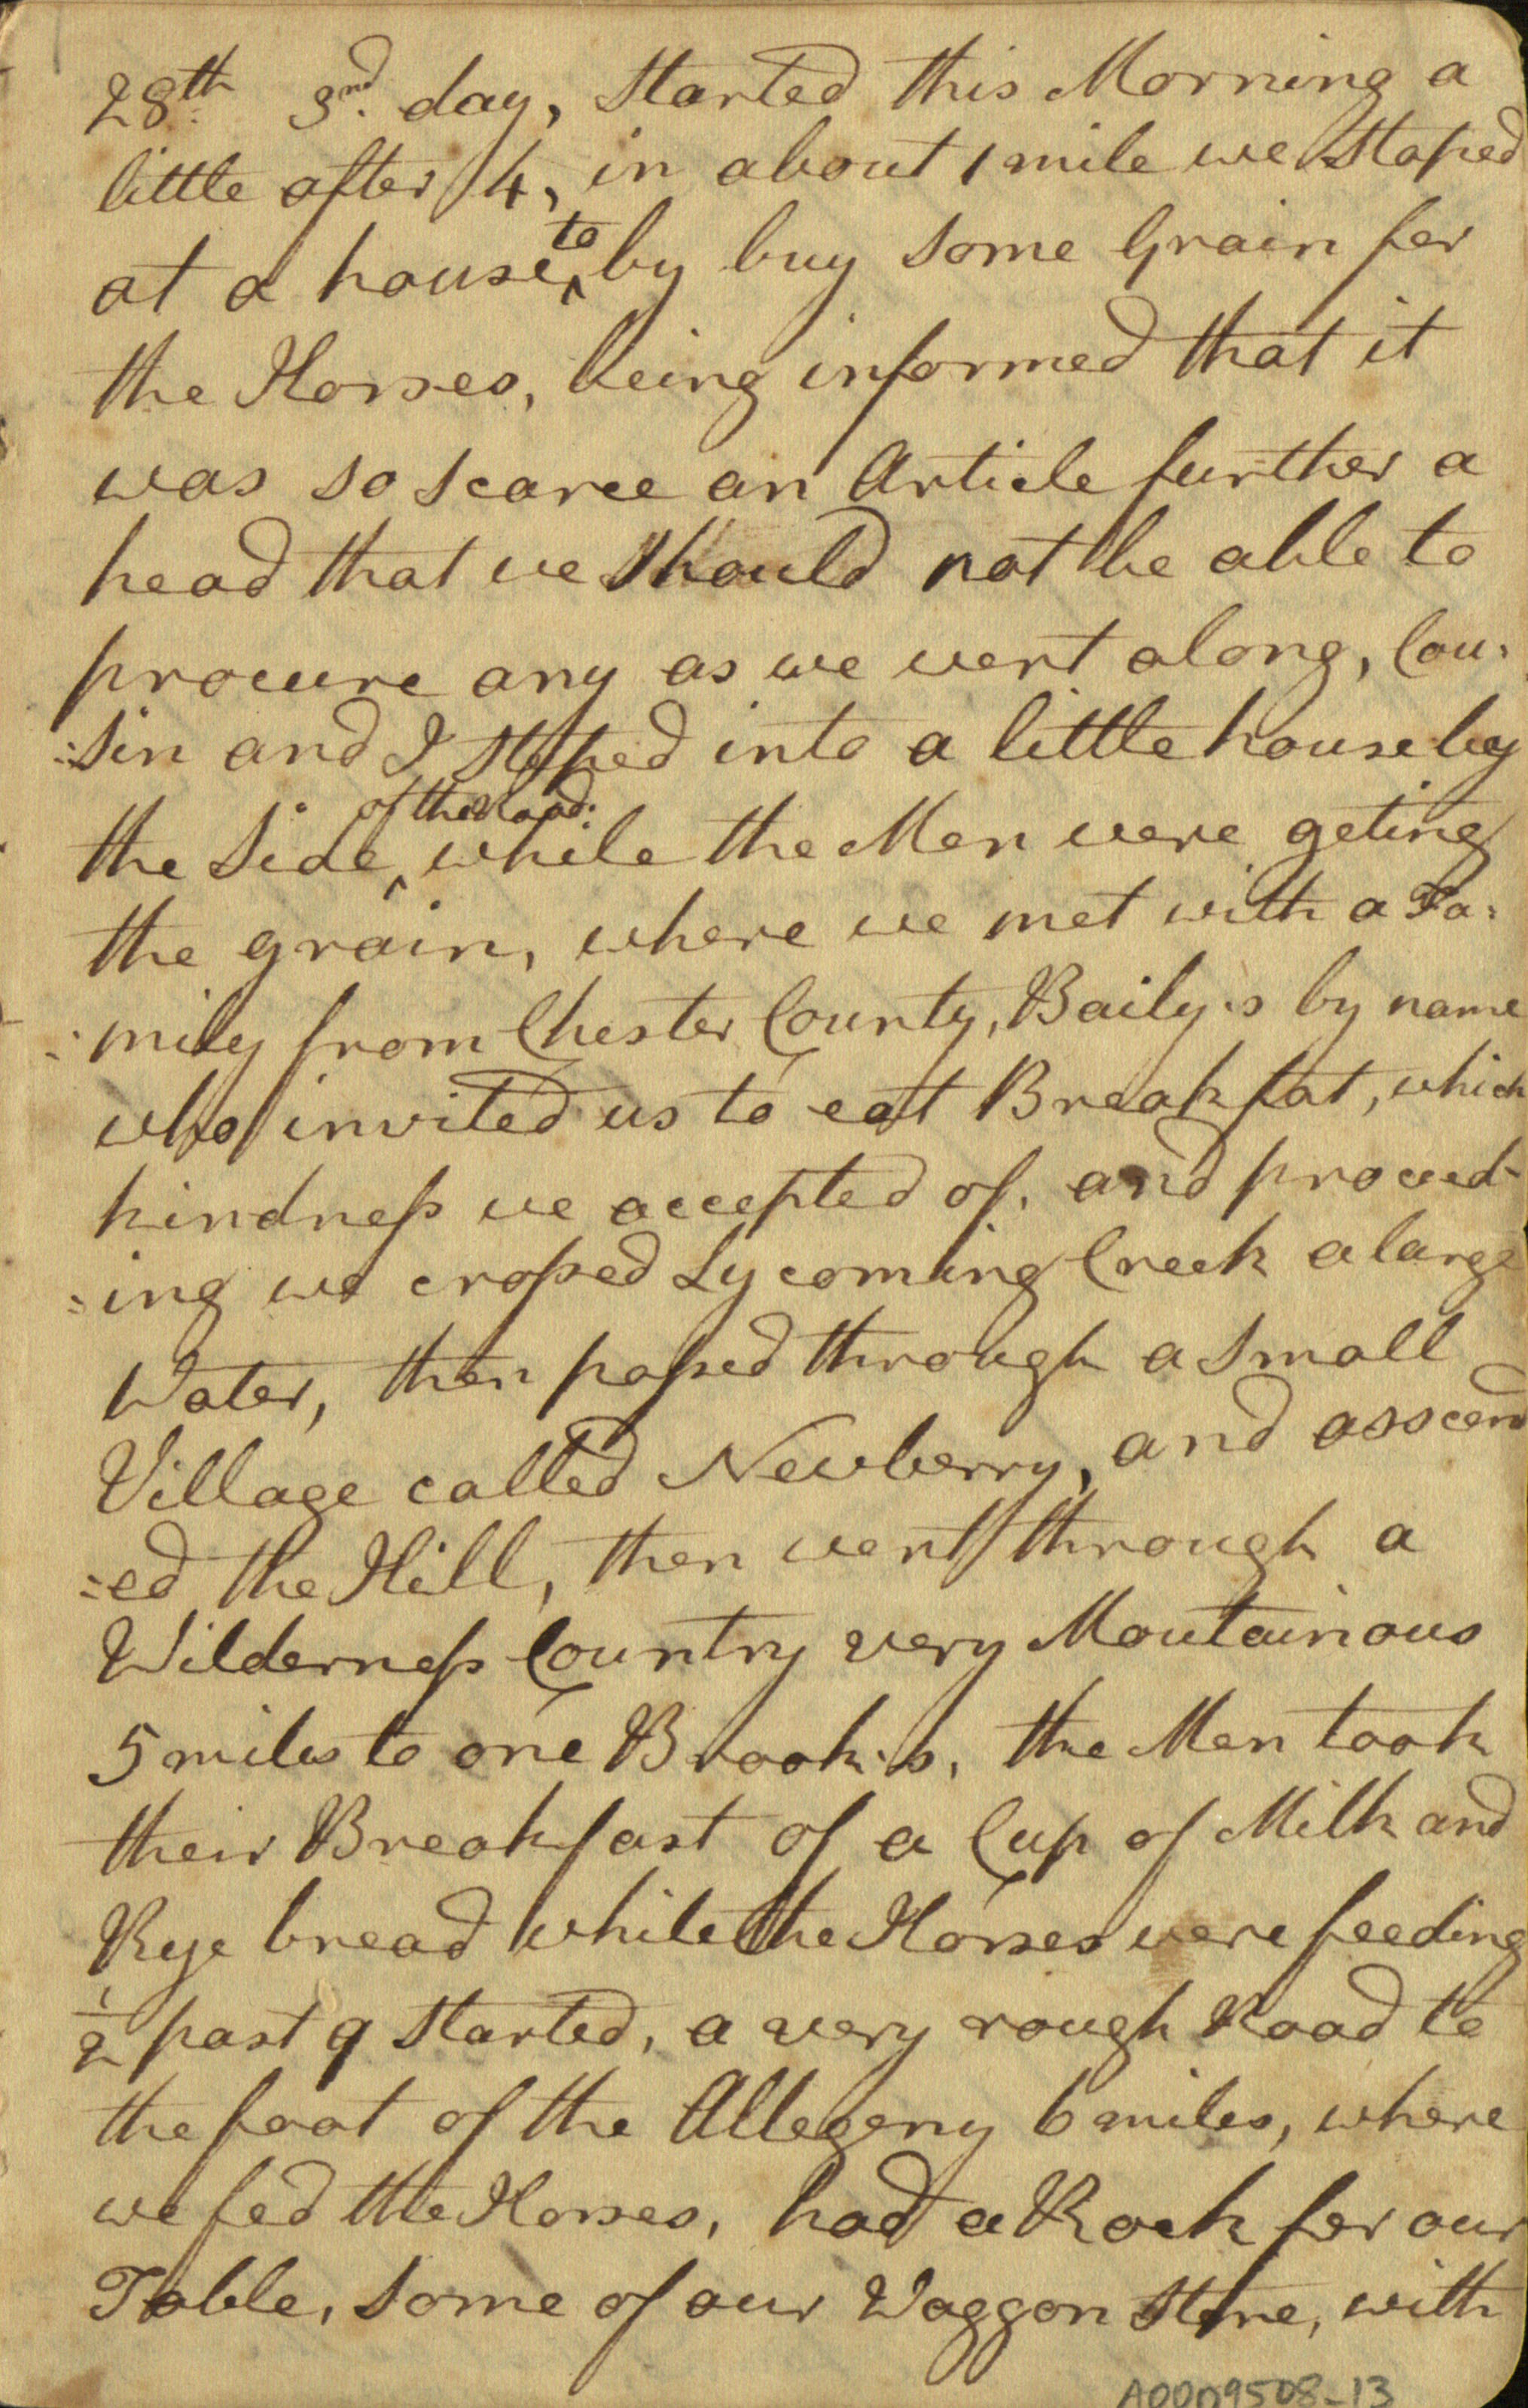 28th. 3nd. day, Started this Morning a
little after 4, in about 1 mile we Stoped
at a house, to by buy some Grain for
the Horses, being informed that it
was so scarce an Article further a
head that we Should not be able to
procure any as we went along, Cou:
:sin and I steped into a little house by
the Side of the Road: while the Men were geting
the grain, where we met with a Fa:
:mily from Chester County, Baily's by name
who invited us to eat Breakfat, which
kindneſs we accepted of, and proceed-
:ing we croſsed Lycoming Creek a large
Water, then paſsed through a small
Village called Newberry, and asscend
:ed the Hill, then went through a
Wilderneſs Country very Moutainous
5 miles to one Brook's, the Men took
their Breakfast of a Cup of Milk and
Rye bread while the Horses were feeding
1/2 past 9 Started, a very rough Road to
the foot of the Allegeny 6 miles, where
we fed the Horses, had a Rock for our
Table, some of our Waggon Store, with
A0009508-13